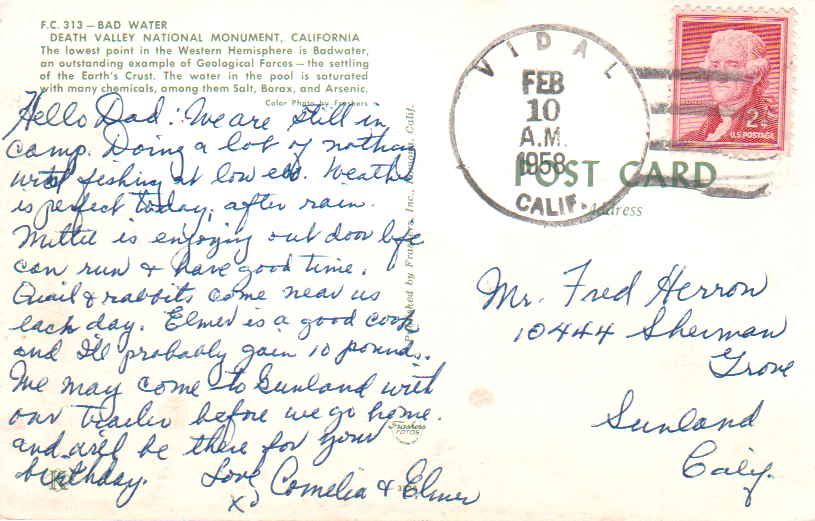 F.C. 313 — BAD WATER
DEATH VALLEY NATIONAL MONUMENT, CALIFORNIA
The lowest point in the Western Hemisphere is Badwater,
an outstanding example of Geological Forces — the settling
of the Earth's Crust. The water in the pool is saturated
with many chemicals, among them Salt, Borax, and Arsenic.
Color Photo by Frashers
Hello Dad: We are still in
camp. Doing a lot of nothing
with fishing at low ebb. Weather
is perfect today, after rain.
Mittie is enjoying out door life
can run & have good time.
Quail & rabbits come near us
each day. Elmer is a good cook
and I'll probably gain 10 pounds.
We may come to Sunland with
our trailer before we go home.
and will be there for your
birthday. Love, Cornelia & Elmer
X
Published by Frashers, Inc., Pomona, Calif.
Frashers
FOTOS
K
VIDAL
FEB
10
A.M.
1958
CALIF.
2¢
U.S. POSTAGE
POST CARD
Address
Mr. Fred Herron
10444 Sherman
Grove
Sunland
Calif.